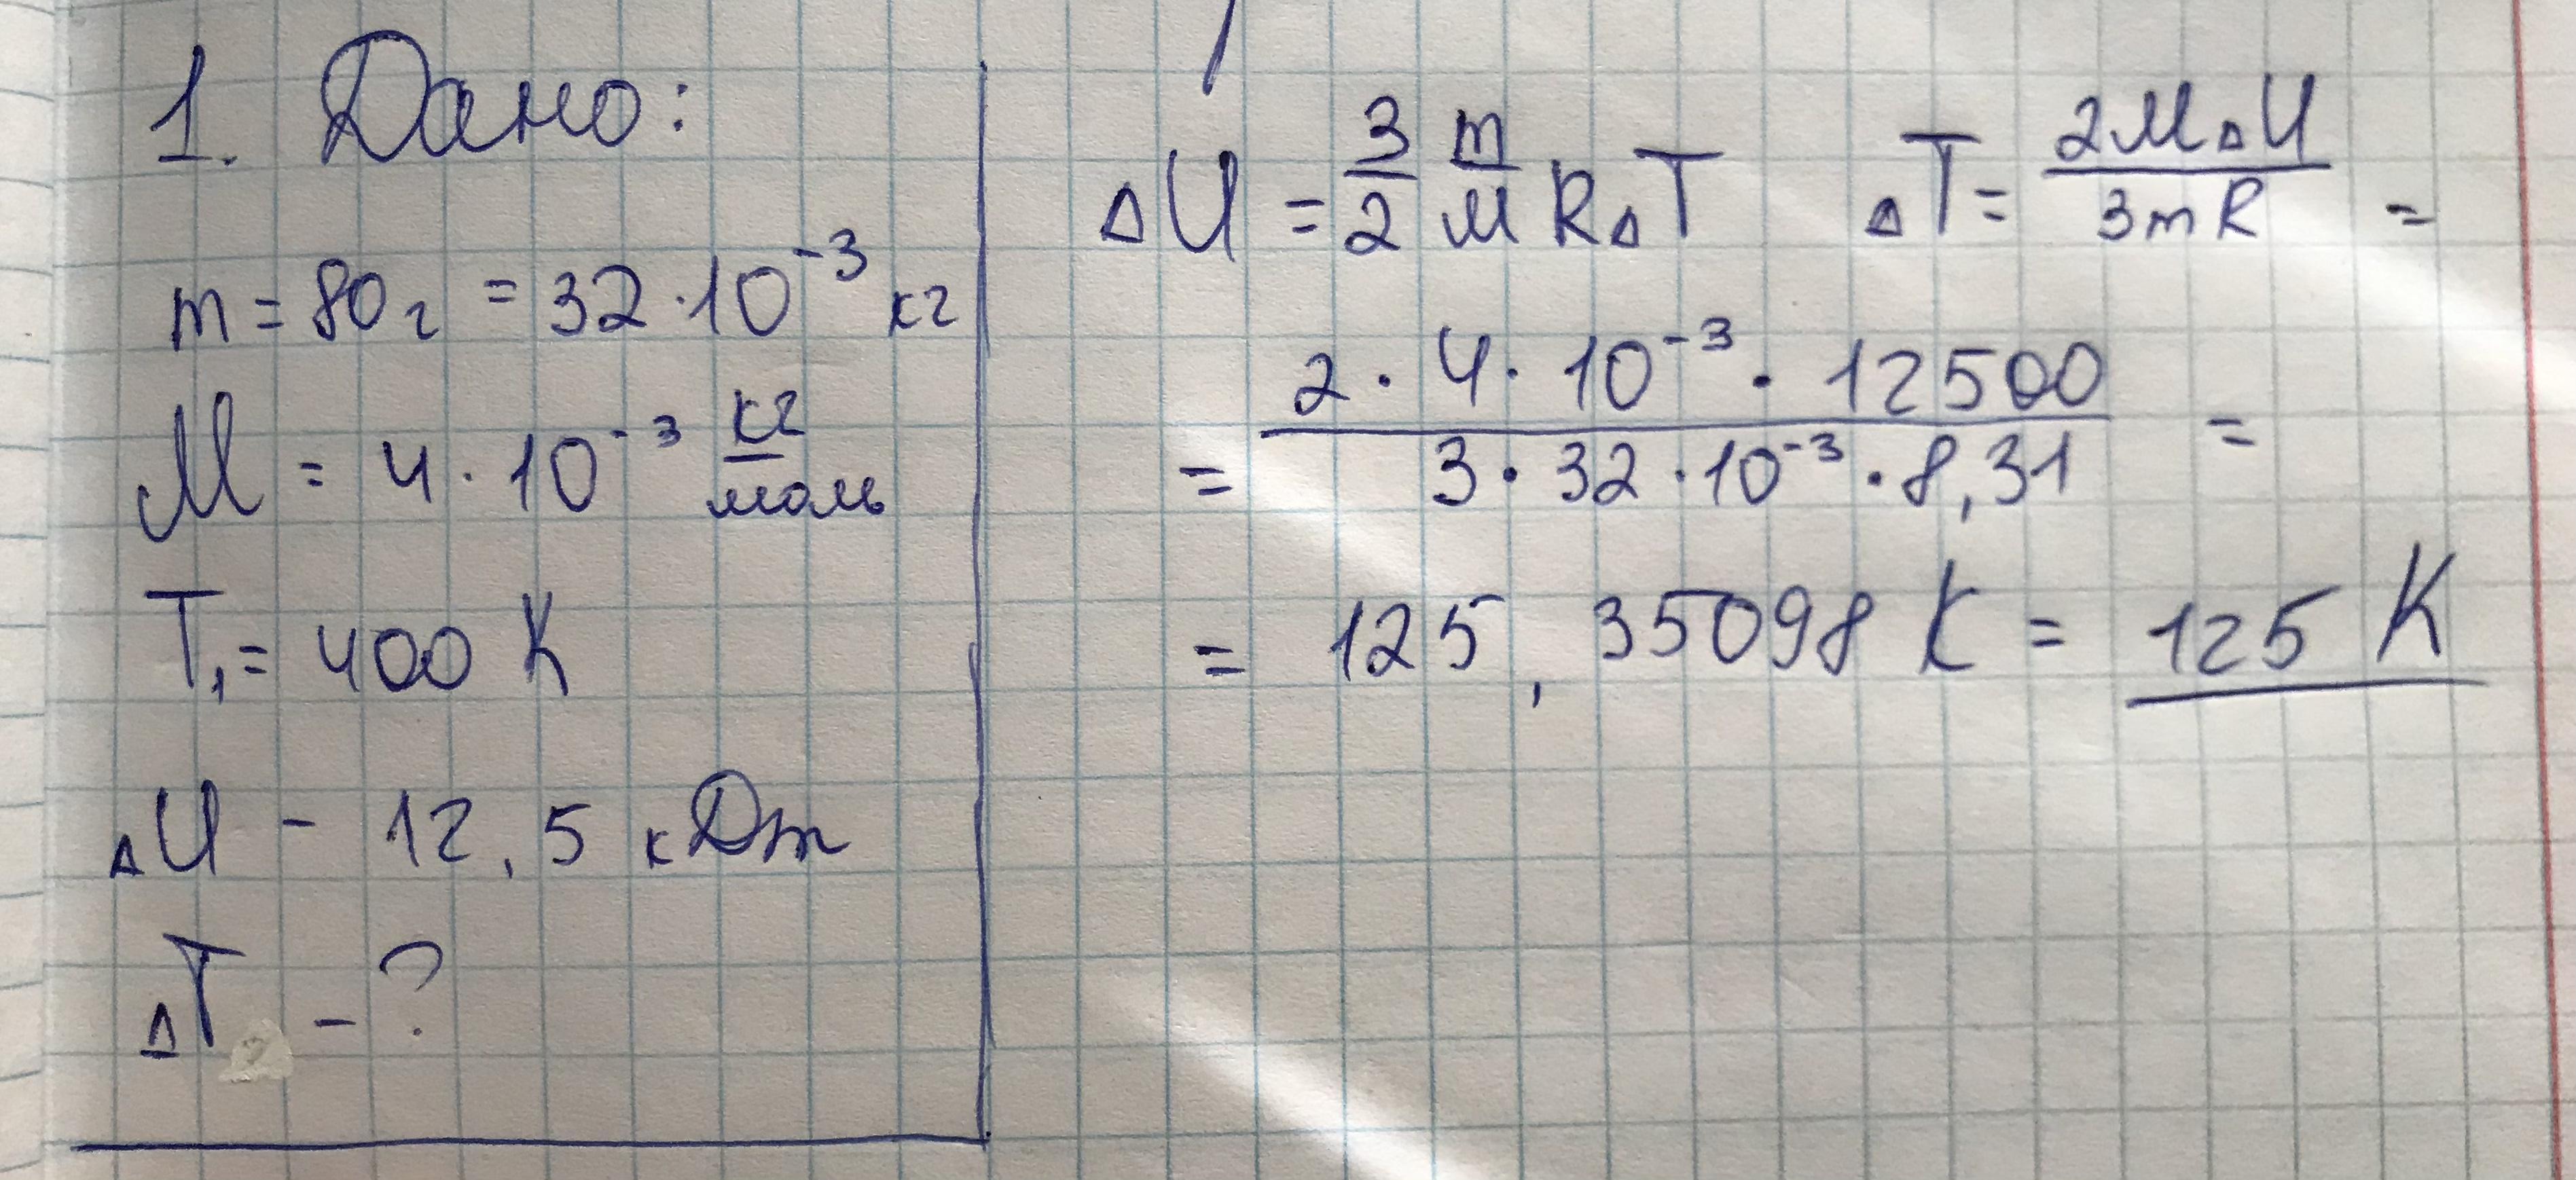 1. Дано:
m = 80 г = 32 · 10⁻³ кг
M = 4 · 10⁻³ кг/моль
T₁ = 400 К
ΔU - 12,5 кДж
ΔT - ?
ΔU = 3/2 m/M RΔT ΔT = 2MΔU/3mR =
= 2 · 4 · 10⁻³ · 12500 / 3 · 32 · 10⁻³ · 8,31 =
= 125,35098 К = 125 К